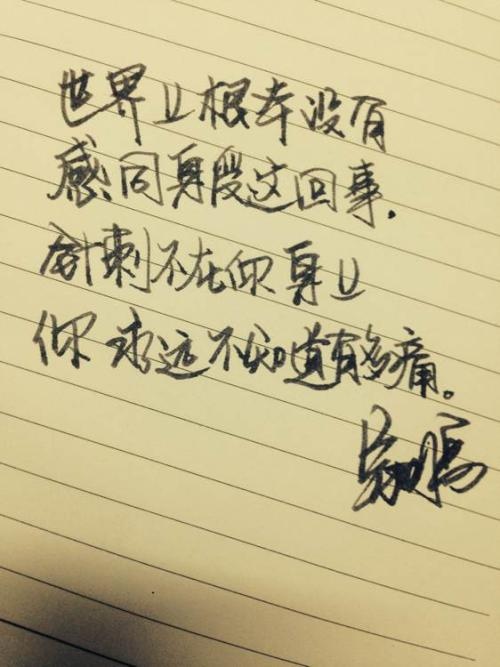 世界上根本没有
感同身受这回事.
针刺不在你身上
你永远不知道有多痛。